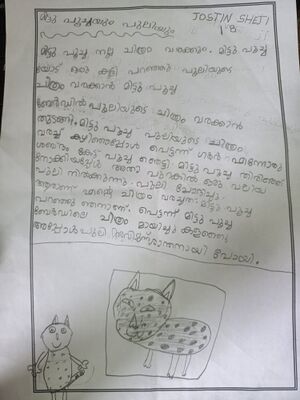 മിട്ടു പൂച്ചയും പുലിയും
JOSTIN SHEJI
1 B
മിട്ടു പൂച്ച നല്ല ചിത്രം വരക്കും. മിട്ടു പൂച്ച
യോട് ഒരു കിളി പറഞ്ഞു പുലിയുടെ
ചിത്രം വരക്കാൻ മിട്ടു പൂച്ച
ബോർഡിൽ പുലിയുടെ ചിത്രം വരക്കാൻ
തുടങ്ങി. മിട്ടു പൂച്ച പുലിയുടെ ചിത്രം
വരച്ച് കഴിഞ്ഞപ്പോൾ പെട്ടന്ന് ഗർർ എന്നൊരു
ശബ്ദം കേട്ടു. പൂച്ച ഞെട്ടി. മിട്ടു പൂച്ച തിരിഞ്ഞ്
നോക്കിയപ്പോൾ അതാ പുറകിൽ ഒരു വലിയ
പുലി നിൽക്കുന്നു. പുലി ചോദിച്ചു.
ആരാണ് എന്റെ ചിത്രം വരച്ചത്. മിട്ടു പൂച്ച
പറഞ്ഞു ഞാനാണ്. പെട്ടന്ന് മിട്ടു പൂച്ച
ബോർഡിലെ ചിത്രം മായിച്ചു കളഞ്ഞു
അപ്പോൾ പുലി പോയി.